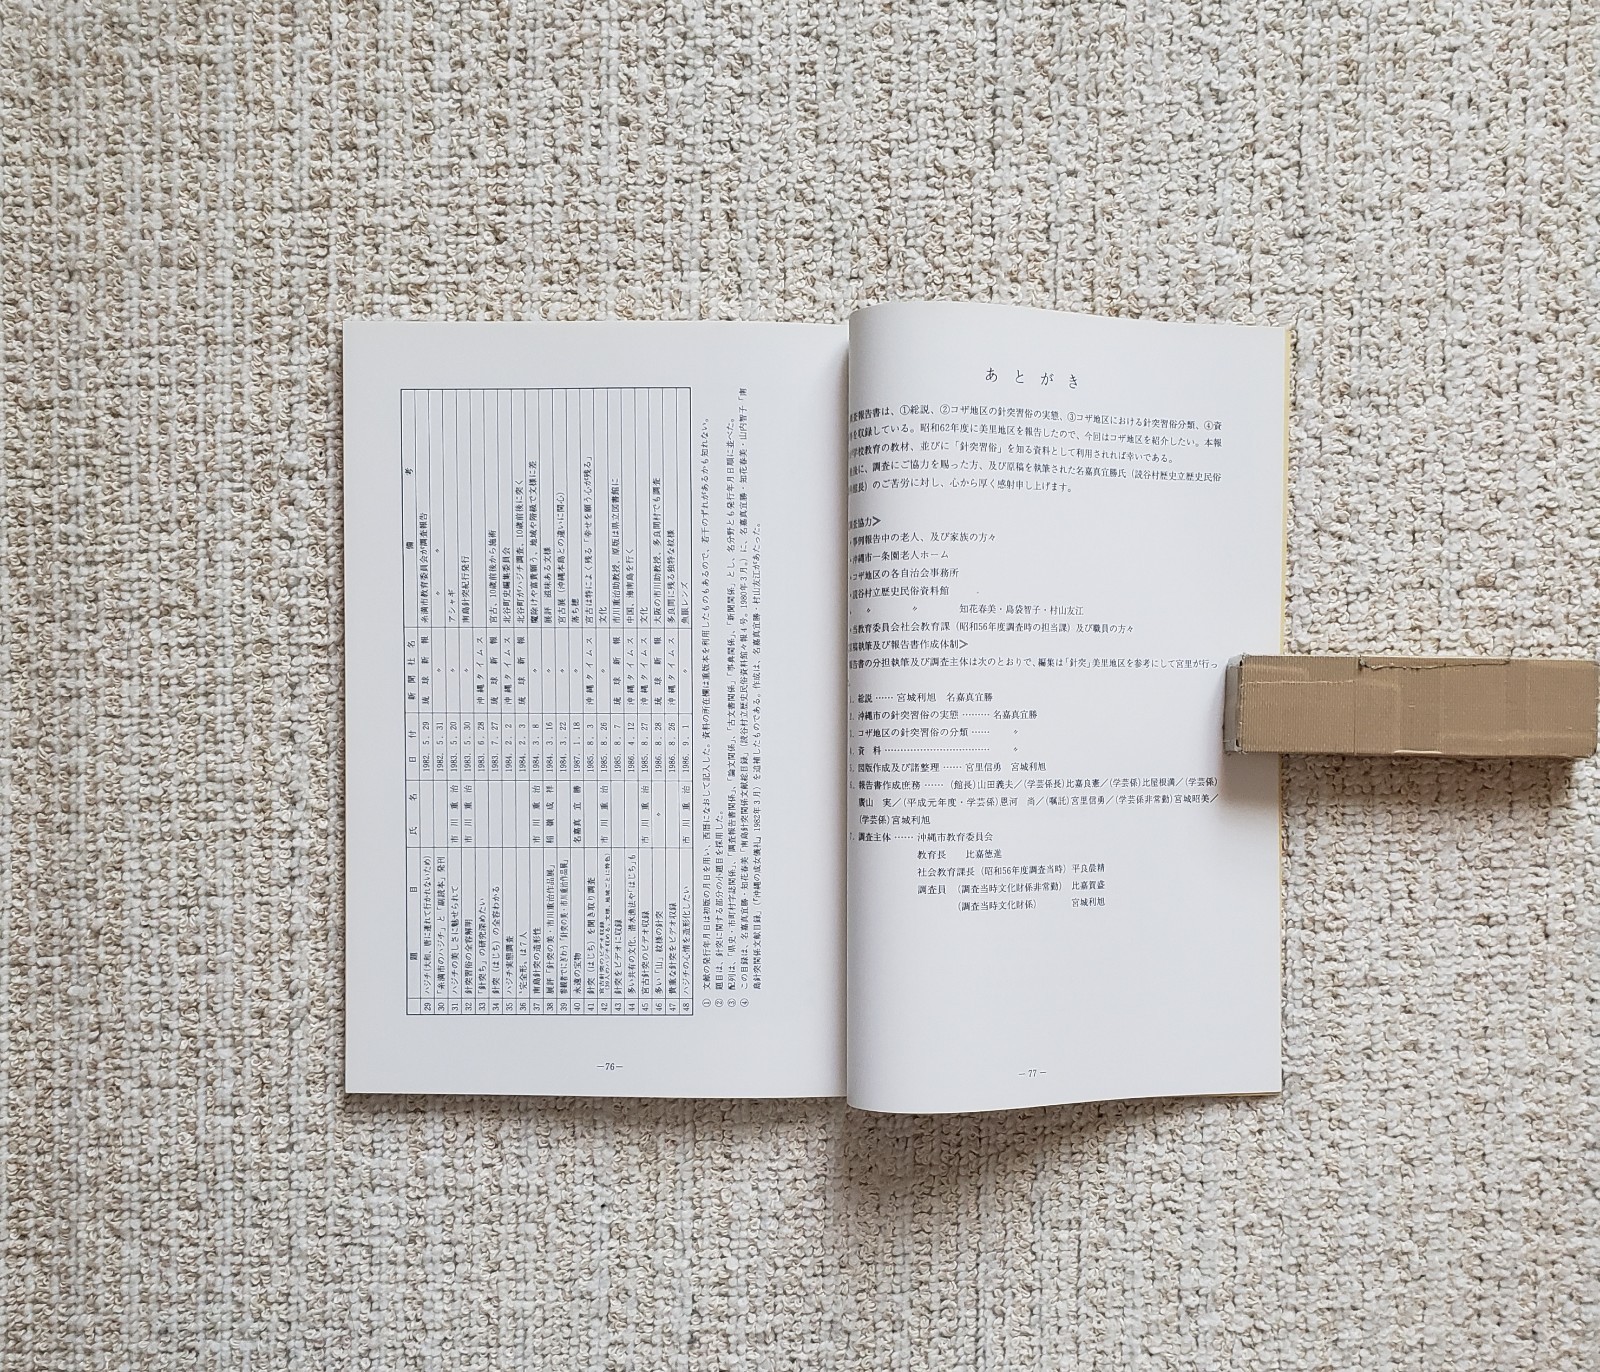 題 目 氏 名 日 付 新 聞 社 名 備 考
29 ハジチ(大和、唐に連れて行かれないため) 1982. 5. 29 琉 球 新 報 糸満市教育委員会が調査報告
30 「糸満市のハジチ」と「副読本」発刊 1982. 5. 31 〃 〃
31 ハジチの美しさに魅せられて 市 川 重 治 1983. 5. 20 〃 アシャギ
32 針突習俗の全容解明 市 川 重 治 1983. 5. 30 〃 南島針突紀行発行
33 「針突ち」の研究深めたい 1983. 6. 28 沖 縄 タ イ ム ス
34 針突(はじち)の全容わかる 1983. 7. 27 琉 球 新 報 宮古、10歳前後から施術
35 ハジチ実態調査 1984. 2. 2 沖 縄 タ イ ム ス 北谷町史編集委員会
36 〝完全形〟は7人 1984. 2. 3 琉 球 新 報 北谷町がハジチ調査、10歳前後に突く
37 南島針突の造形性 市 川 重 治 1984. 3. 8 〃 魔除けや富貴願う、地域や階級で文様に差
38 展評「針突の美・市川重治作品展」 稲 嶺 成 祚 1984. 3. 16 〃 展評 滋味ある文様
39 参観者でにぎわう「針突の美・市川重治作品展」 1984. 3. 22 〃 宮古展(沖縄本島との違いに関心)
40 永遠の宝物 名嘉真 宜 勝 1987. 1. 18 〃 落ち穂
41 針突(はじち)を聞き取り調査 1985. 8. 3 沖 縄 タ イ ム ス 宮古は特によく残る「幸せを願う心が残る」
42 市 川 重 治 1985. 8. 26 〃 文化
43 針突をビデオに収録 1985. 8. 7 琉 球 新 報 市川重治助教授、原版は県立図書館に
44 多い共有の文化、潜水漁法や「はじち」も 1986. 4. 12 沖 縄 タ イ ム ス 中国、海南島を行く
45 宮古針突のビデオ収録 市 川 重 治 1985. 8. 27 沖 縄 タ イ ム ス 文化
46 多い「山」紋様の針突 〃 1986. 8. 28 琉 球 新 報 大阪の市川助教授、多良間村でも調査
47 貴重な針突をビデオ収録 1986. 8. 26 沖 縄 タ イ ム ス 多良間に残る独特な紋様
48 ハジチの心情を造形化したい 市 川 重 治 1986. 9. 1 〃 魚眼レンズ
① 文献の発行年月日は初版の月日を用い、西暦になおして記入した。資料の所在欄は重版本を利用したものもあるので、若干のずれがあるかも知れない。
② 題目は、針突に関する部分の小題目を採用した。
③ 配列は、「県史・市町村字誌関係」、「調査報告書関係」、「論文関係」、「古文書関係」、「事典関係」、「新聞関係」とし、各分野とも発行年月日順に並べた。
④ この目録は、名嘉真宜勝・知花春美「南島針突関係文献総目録」(読谷村立歴史民俗資料館々報4号。1980年3月。)に、名嘉真宜勝・知花春美・山内智子「南
島針突関係文献目録」(「沖縄の成女儀礼」1982年3月)を追補したものである。作成は、名嘉真宜勝・村山友江があたった。
―76―
あ と が き
査報告書は、①総説、②コザ地区の針突習俗の実態、③コザ地区における針突習俗分類、④資
を収録している。昭和62年度に美里地区を報告したので、今回はコザ地区を紹介したい。本報
学校教育の教材、並びに「針突習俗」を知る資料として利用されれば幸いである。
後に、調査にご協力を賜った方、及び原稿を執筆された名嘉真宜勝氏(読谷村歴史立歴史民俗
館長)のご苦労に対し、心から厚く感射申し上げます。
査協力＞
事例報告中の老人、及び家族の方々
沖縄市一条園老人ホーム
コザ地区の各自治会事務所
読谷村立歴史民俗資料館
〃 〃 知花春美・島袋智子・村山友江
当教育委員会社会教育課(昭和56年度調査時の担当課)及び職員の方々
稿執筆及び報告書作成体制＞
告書の分担執筆及び調査主体は次のとおりで、編集は「針突」美里地区を参考にして宮里が行っ
。
1. 総説 …… 宮城利旭 名嘉真宜勝
2. 沖縄市の針突習俗の実態 ……… 名嘉真宜勝
3. コザ地区の針突習俗の分類 …… 〃
4. 資 料 ………………………… 〃
5. 図版作成及び諸整理 …… 宮里信勇 宮城利旭
6. 報告書作成庶務 …… (館長)山田義夫／(学芸係長)比嘉良憲／(学芸係)比屋根満／(学芸係)
廣山 実／(平成元年度・学芸係)恩河 尚／(嘱託)宮里信勇／(学芸係非常勤)宮城昭美／
(学芸係)宮城利旭
7. 調査主体 …… 沖縄市教育委員会
教育長 比嘉徳進
社会教育課長(昭和56年度調査当時)平良晨精
調査員 (調査当時文化財係非常勤) 比嘉賀盛
(調査当時文化財係) 宮城利旭
―77―